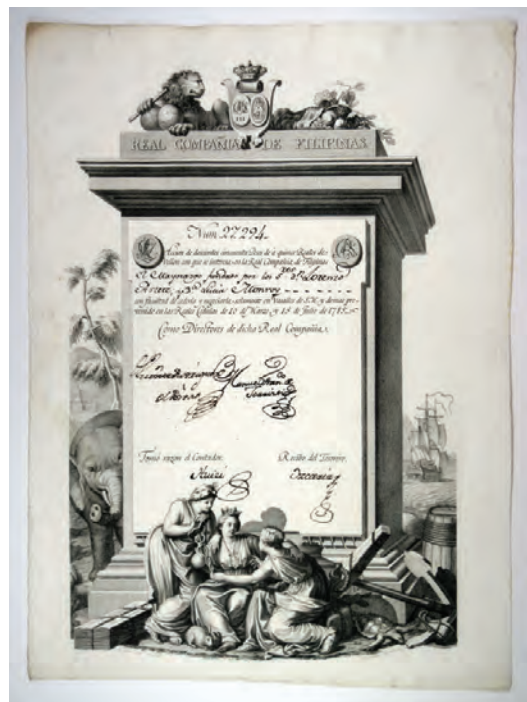 REAL COMPAÑIA DE FILIPINAS
Num. 27294.
Accion de doscientos cincuenta Pesos de á quince Reales de
vellon con que se interesa en la Real Compañía de Filipinas
El Mayorazgo fundado por los S.res Dn. Lorenzo
y D.a Lucia Monroy
con facultad de cederla y negociarla solamente en Vasallos de S.M. y demas pre-
venido en las Reales Cédulas de 10 de Marzo, y 15 de Julio de 1785.
Como Directores de dicha Real Compañía.
Tomó razon el Contador.
Recibí del Tesorero.